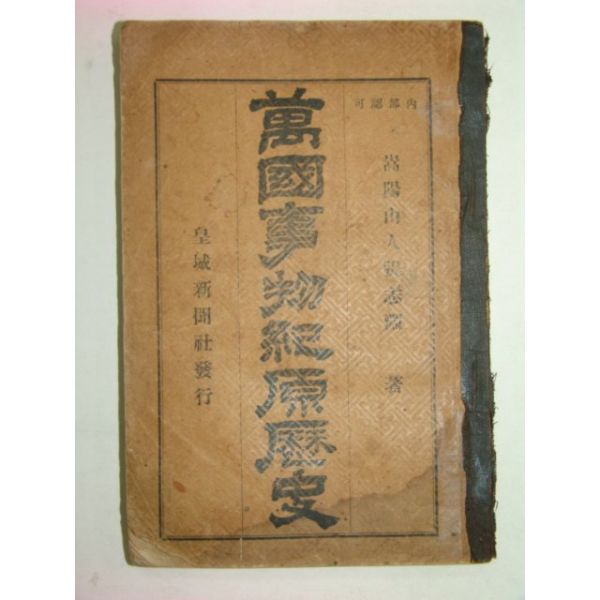 內部認可
嵩陽山人張志淵 著
萬國事物紀原歷史
皇城新聞社發行